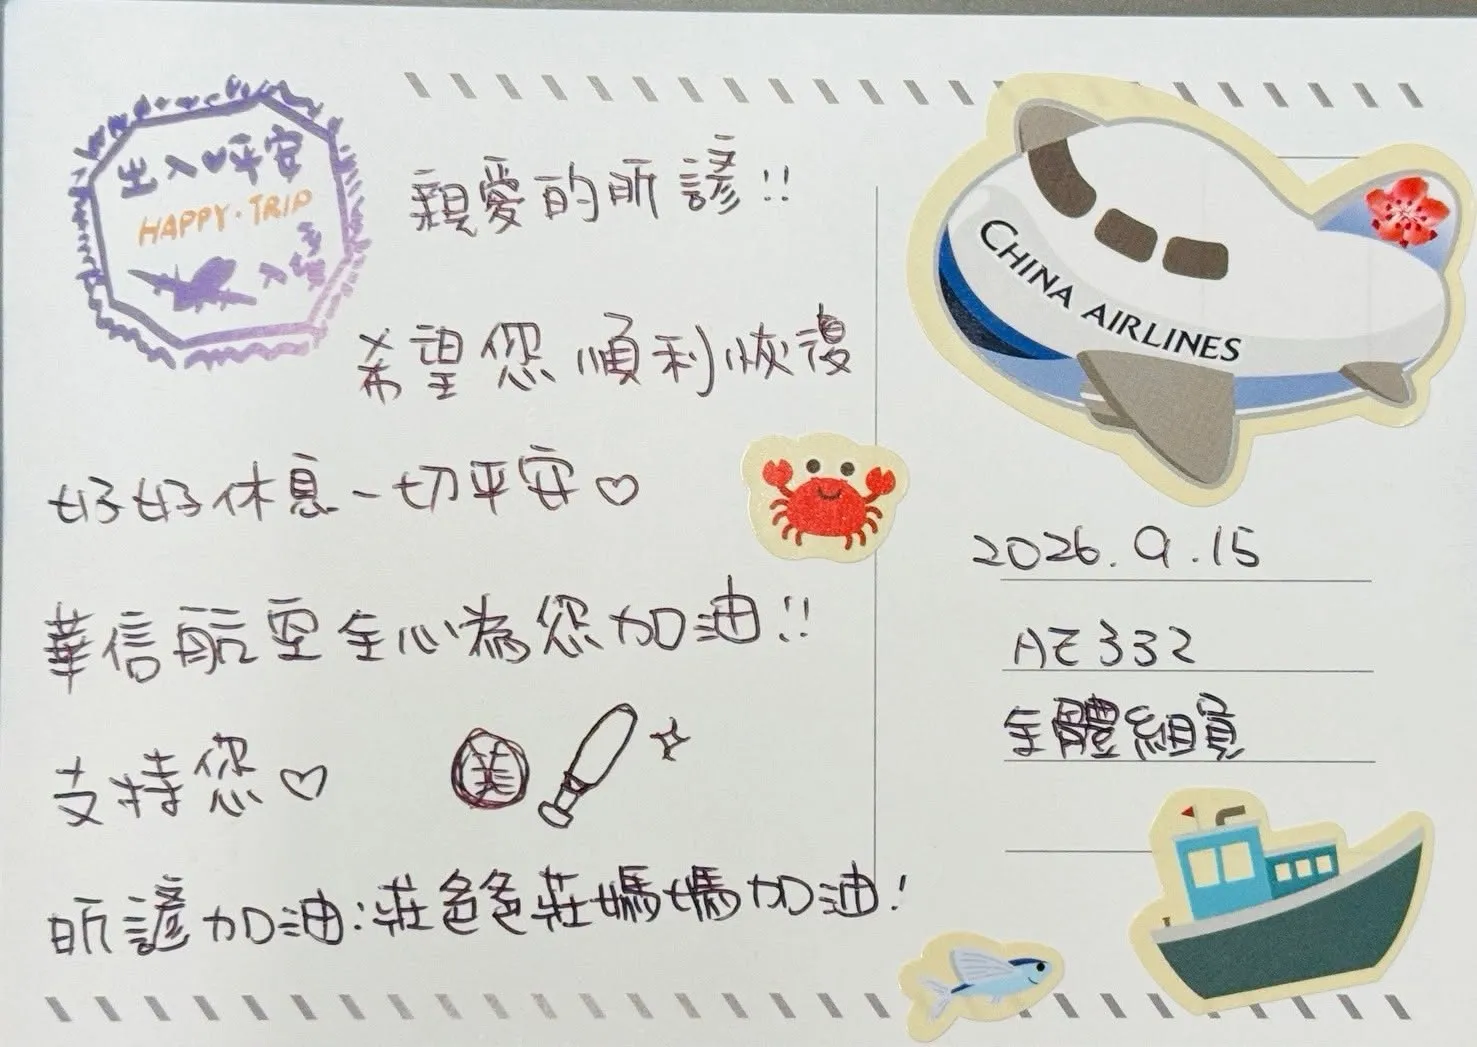 出入♡平安
HAPPY·TRIP
入境
親愛的昕諺!!
希望您順利恢復
好好休息、一切平安♡
華信航空全心為您加油!!
支持您♡
美
昕諺加油!莊爸爸莊媽媽加油!
CHINA AIRLINES
2026.9.15
AE332
全體組員